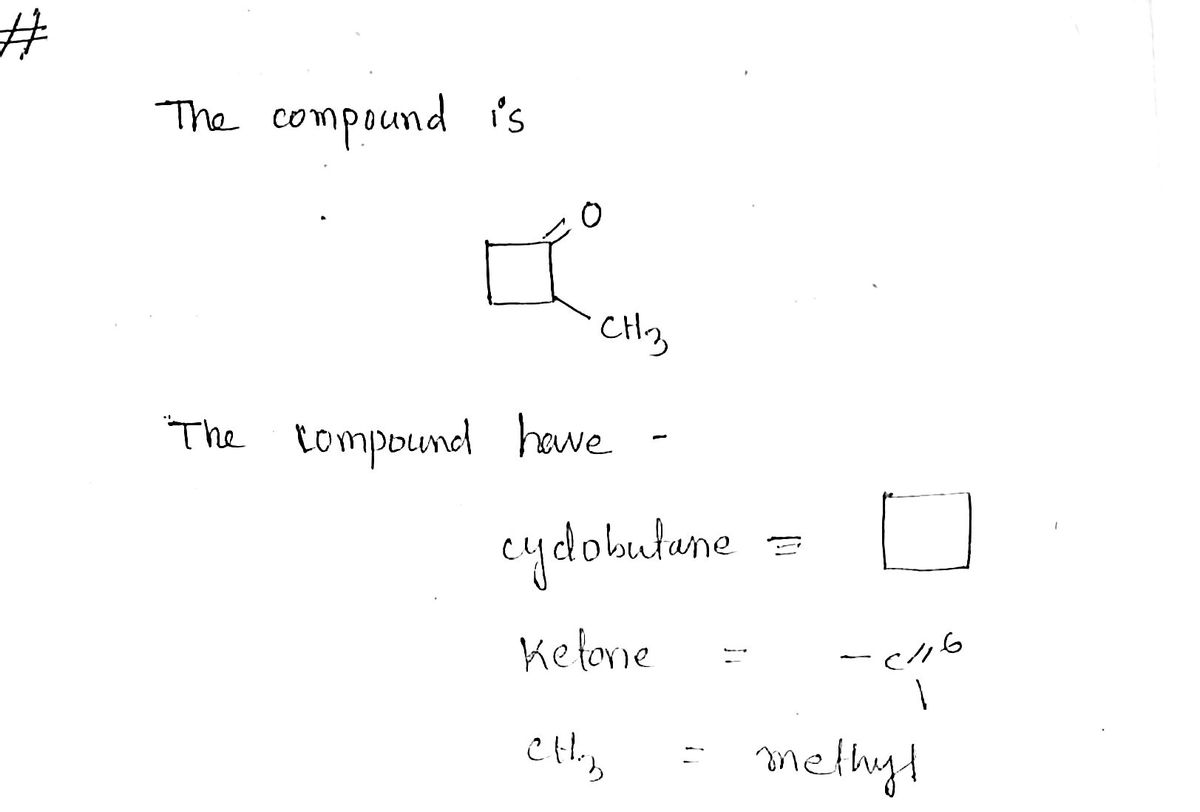 #
The compound is
O
CH3
The compound have -
cyclobutane =
Ketone = - C = O
CH3 = methyl